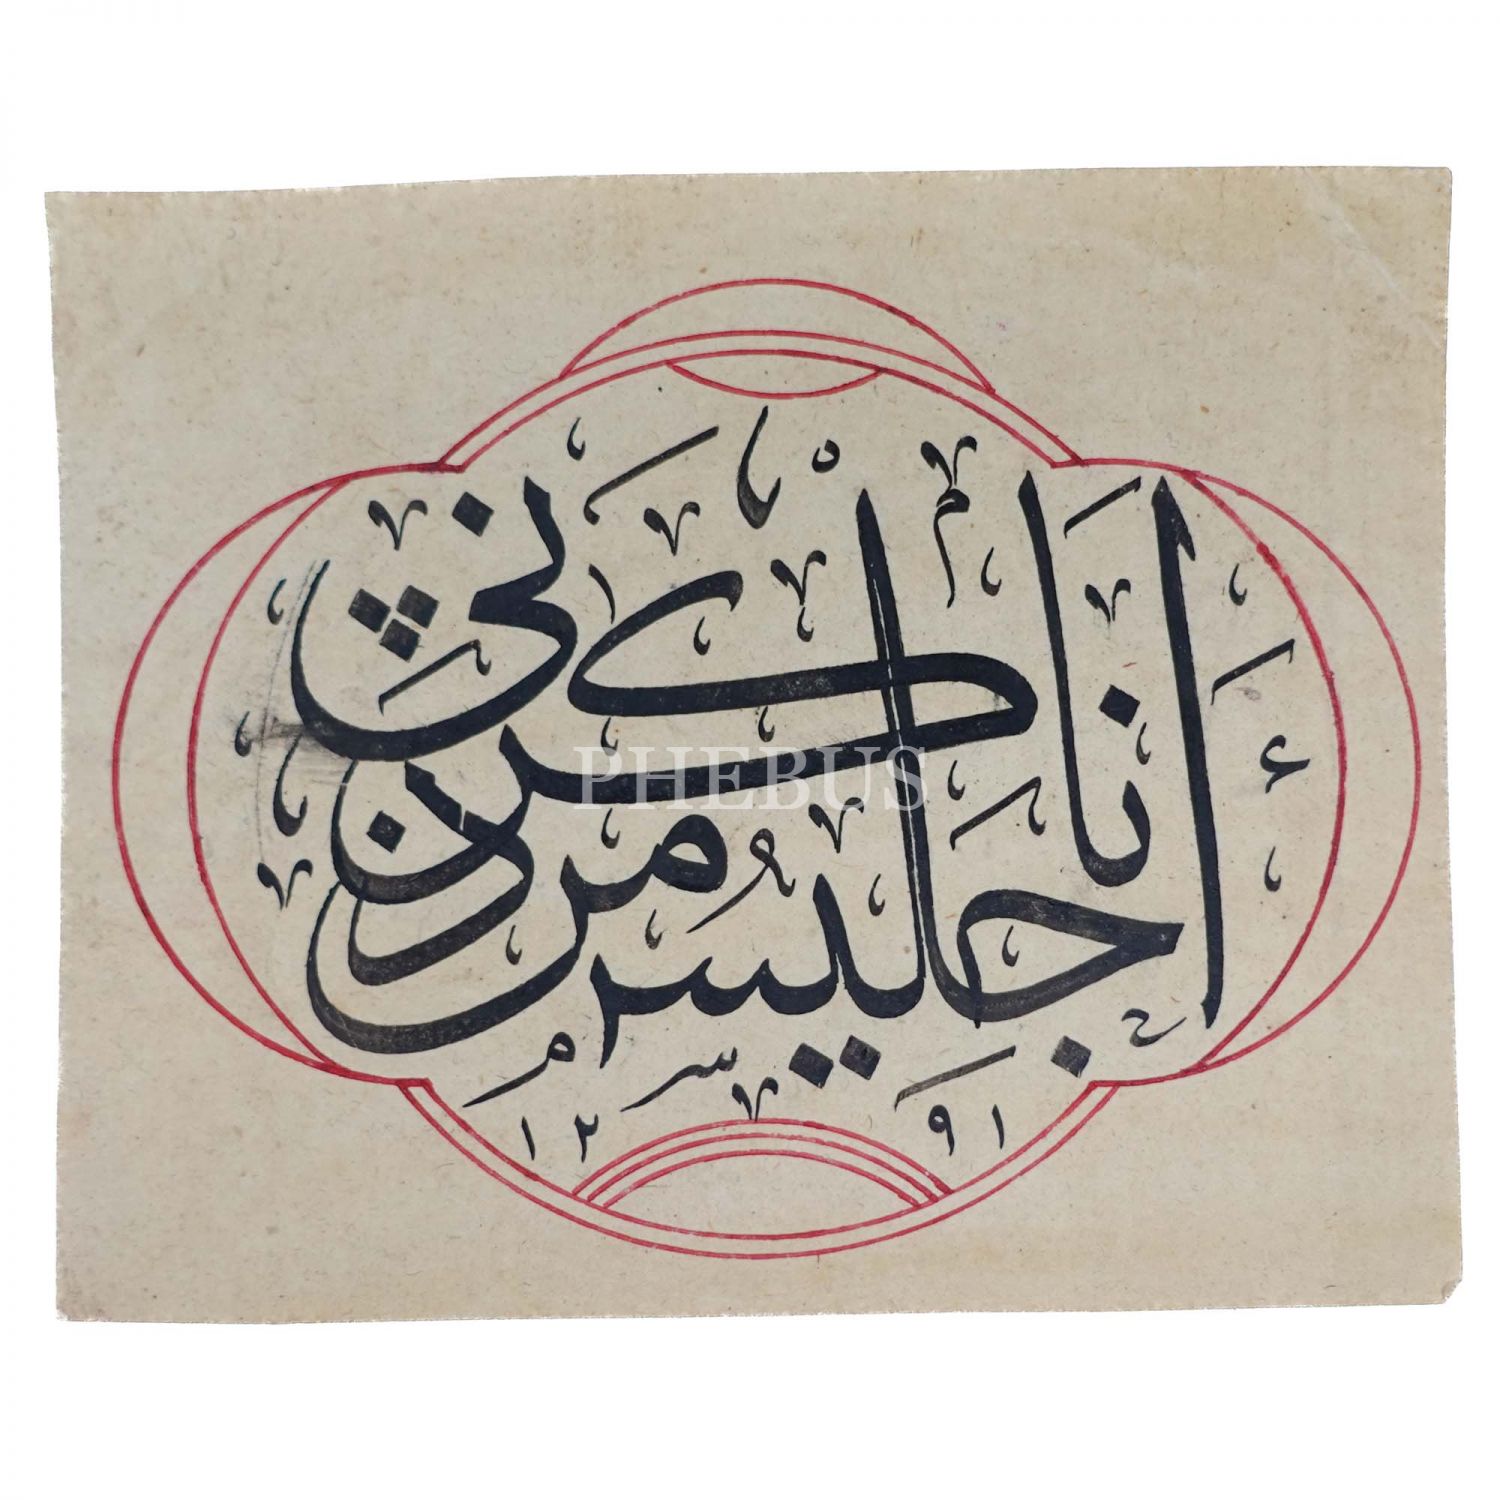 انا جليس من ذكرني
١٢٩١
PHEBUS